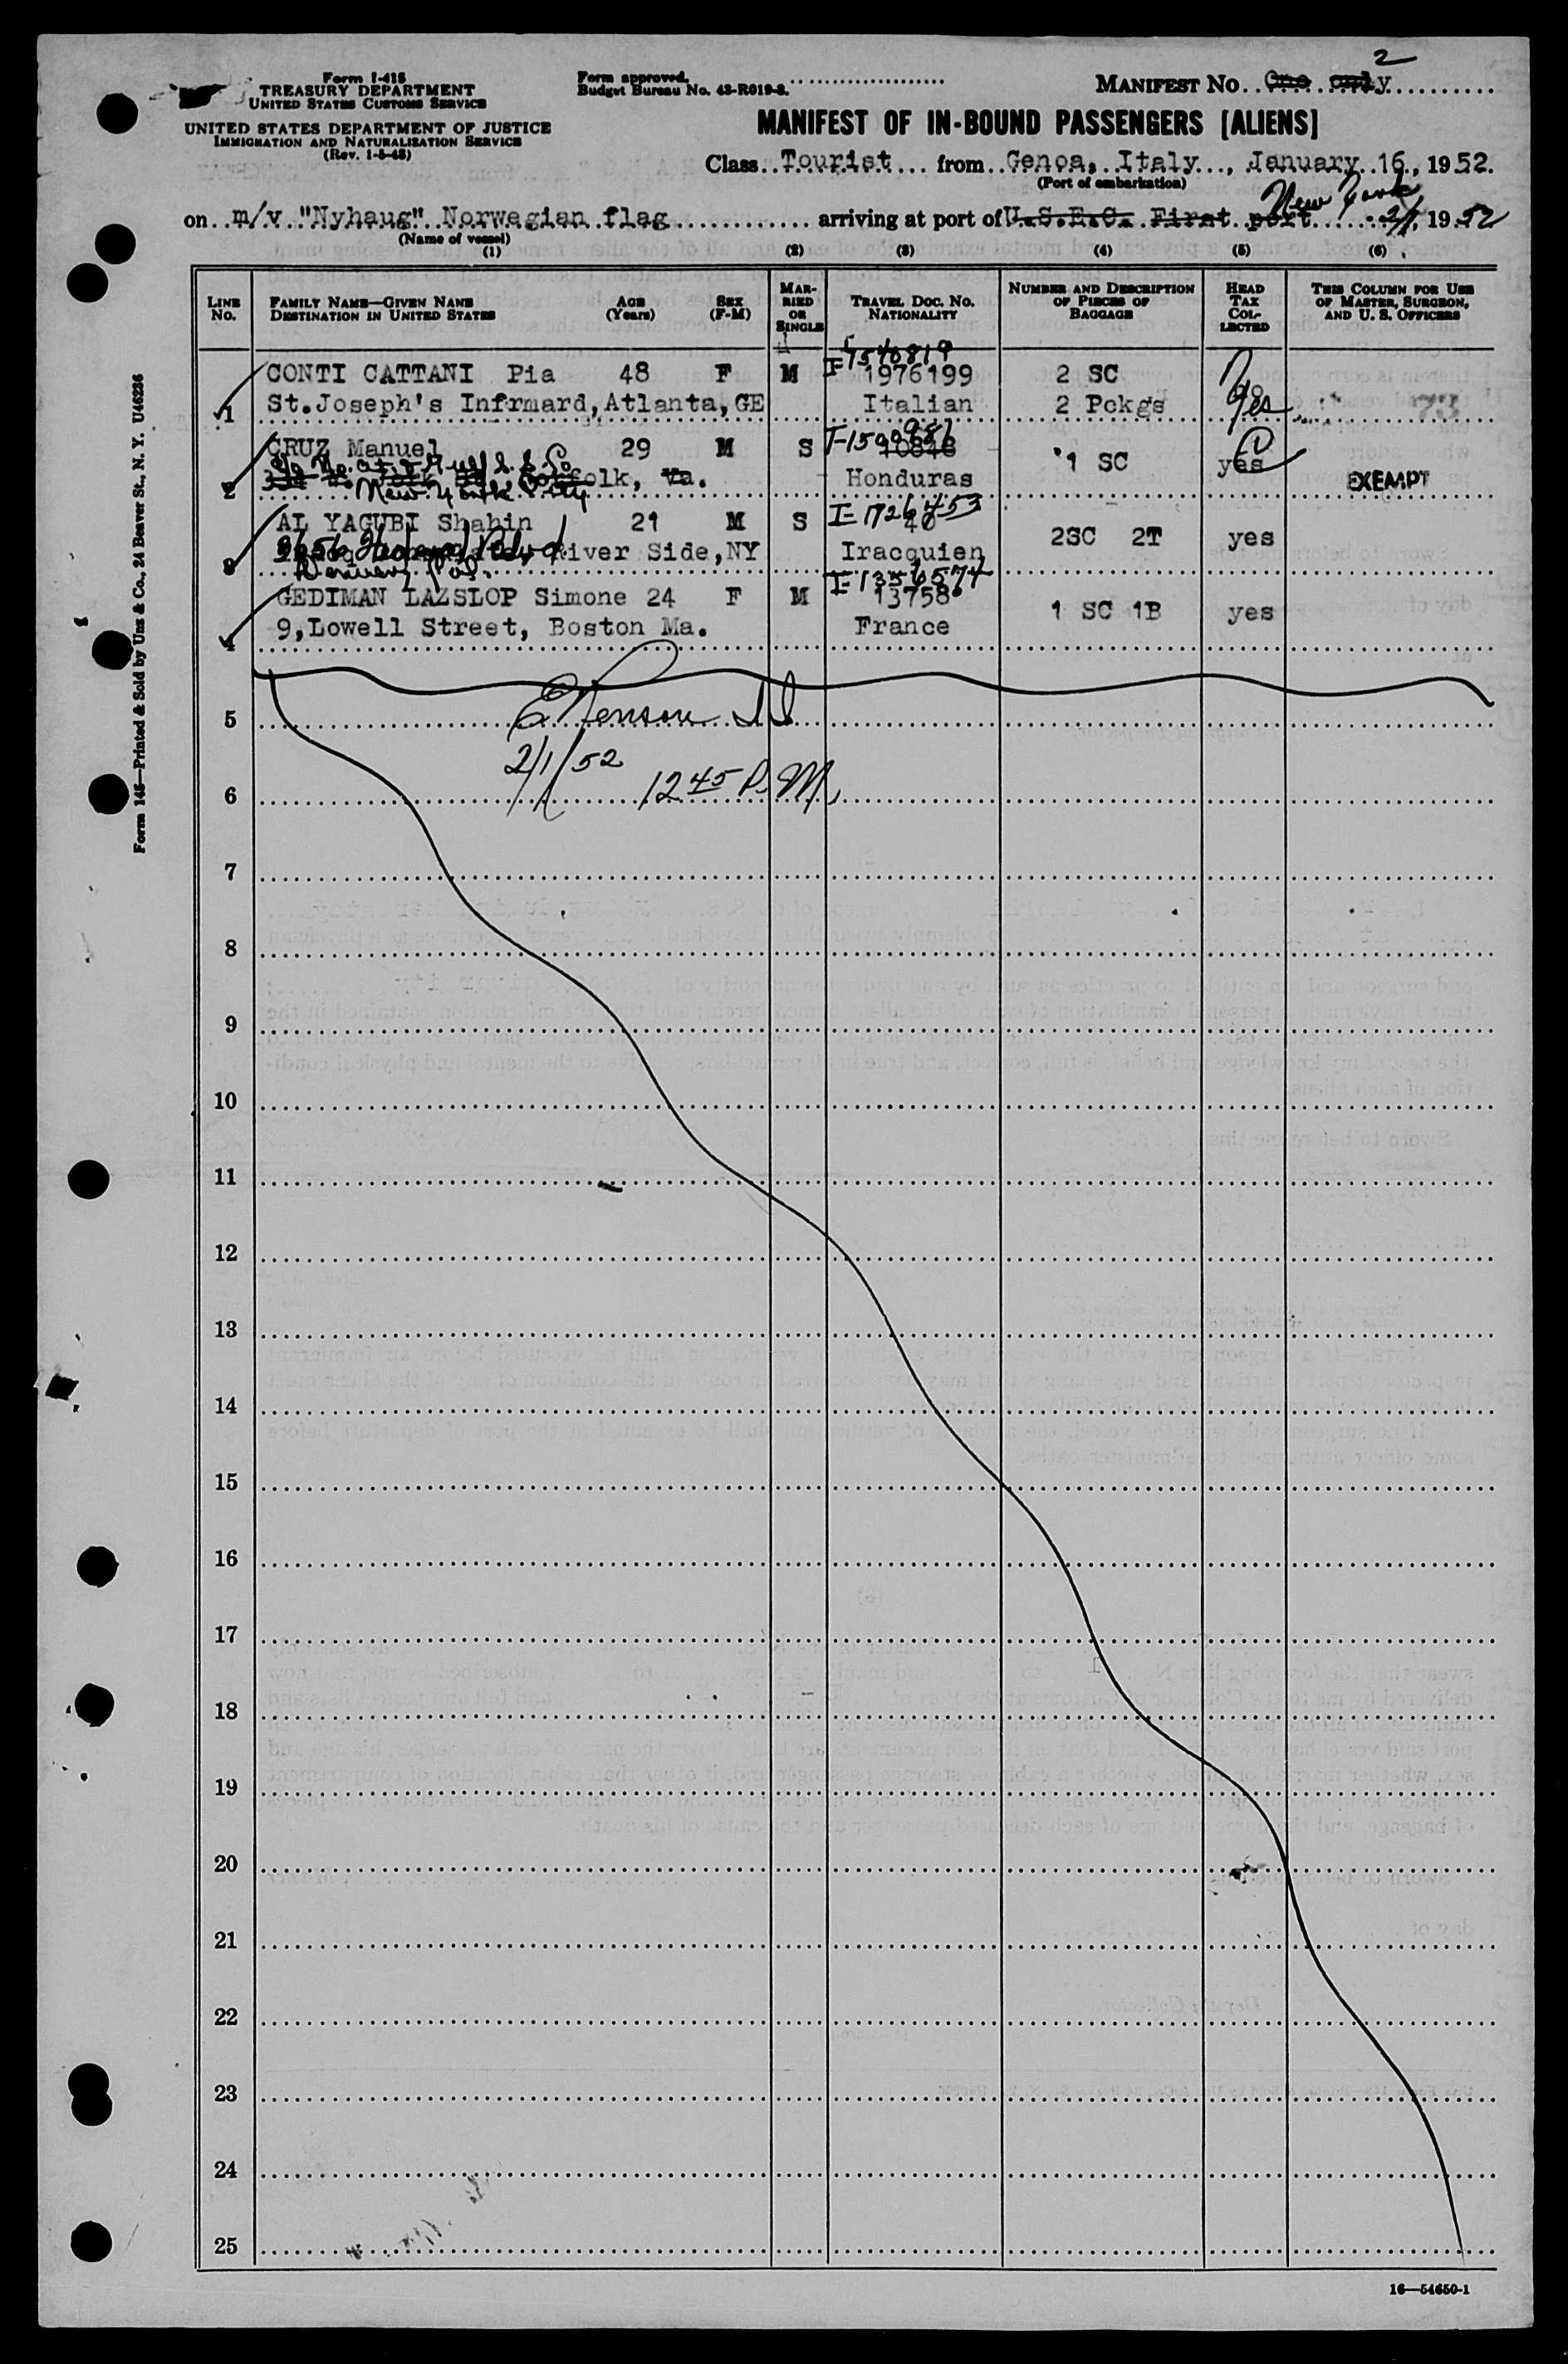 Form I-415
TREASURY DEPARTMENT
UNITED STATES CUSTOMS SERVICE
UNITED STATES DEPARTMENT OF JUSTICE
IMMIGRATION AND NATURALIZATION SERVICE
(Rev. 1-5-48)
Form approved.
Budget Bureau No. 43-R019-3.
2
MANIFEST NO. One only
MANIFEST OF IN-BOUND PASSENGERS [ALIENS]
Class Tourist from Genoa, Italy, January 16, 1952.
(Port of embarkation)
New York
on m/v "Nyhaug" Norwegian flag arriving at port of U.S.E.C. First port 2/1, 1952
(Name of vessel)
(1) (2) (3) (4) (5) (6)
LINE NO.
FAMILY NAME—GIVEN NAME
DESTINATION IN UNITED STATES
AGE (Years)
SEX (F-M)
MARRIED OR SINGLE
TRAVEL DOC. NO. NATIONALITY
NUMBER AND DESCRIPTION OF PIECES OF BAGGAGE
HEAD TAX COLLECTED
THIS COLUMN FOR USE OF MASTER, SURGEON, AND U. S. OFFICERS
CONTI CATTANI Pia 48 F M 1976199 2 SC
1 St.Joseph's Infrmard,Atlanta,GE Italian 2 Pckgs yes
CRUZ Manuel 29 M S 10848 1 SC yes
2 Norfolk, Va. Honduras EXEMPT
New York City
I-1726453
AL YAGUBI Shahin 21 M S 40 2SC 2T yes
3 River Side,NY Iracquien
Denver, Col.
I-1356574
GEDIMAN LAZSLOP Simone 24 F M 13758 1 SC 1B yes
4 9,Lowell Street, Boston Ma. France
5
2/1/52
6 12 45 P.M.
7
8
9
10
11
12
13
14
15
16
17
18
19
20
21
22
23
24
25
16—54650-1
Form 145—Printed & Sold by Unz & Co., 24 Beaver St., N. Y. U46236